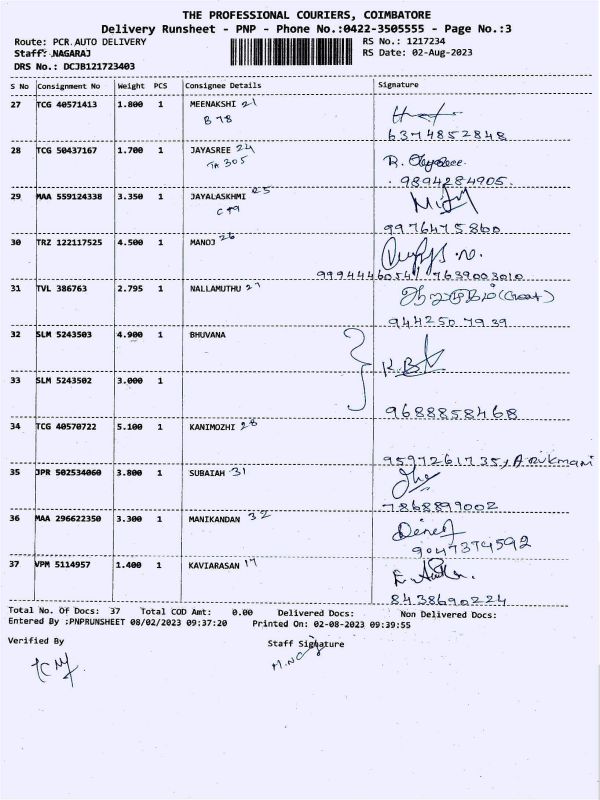 THE PROFESSIONAL COURIERS, COIMBATORE
Delivery Runsheet - PNP - Phone No.:0422-3505555 - Page No.:3
Route: PCR.AUTO DELIVERY RS No.: 1217234
Staff: NAGARAJ RS Date: 02-Aug-2023
DRS No.: DCJB121723403
S No Consignment No Weight PCS Consignee Details Signature
27 TCG 40571413 1.800 1 MEENAKSHI 21
B 78
6374852848
28 TCG 50437167 1.700 1 JAYASREE 24
TA 305
9894284905.
29 MAA 559124338 3.350 1 JAYALASKHMI 25
9976475860
30 TRZ 122117525 4.500 1 MANOJ 26
9994446054 / 7639003010
31 TVL 386763 2.795 1 NALLAMUTHU 27
9442507939
32 SLM 5243503 4.900 1 BHUVANA
K.B
33 SLM 5243502 3.000 1
9688858468
34 TCG 40570722 5.100 1 KANIMOZHI 28
9597261735, A Rukmani
35 JPR 502534060 3.800 1 SUBAIAH 31
7868899002
36 MAA 296622350 3.300 1 MANIKANDAN 32
9047374592
37 VPM 5114957 1.400 1 KAVIARASAN 17
8438690224
Total No. Of Docs: 37 Total COD Amt: 0.00 Delivered Docs: Non Delivered Docs:
Entered By :PNPRUNSHEET 08/02/2023 09:37:20 Printed On: 02-08-2023 09:39:55
Verified By Staff Signature